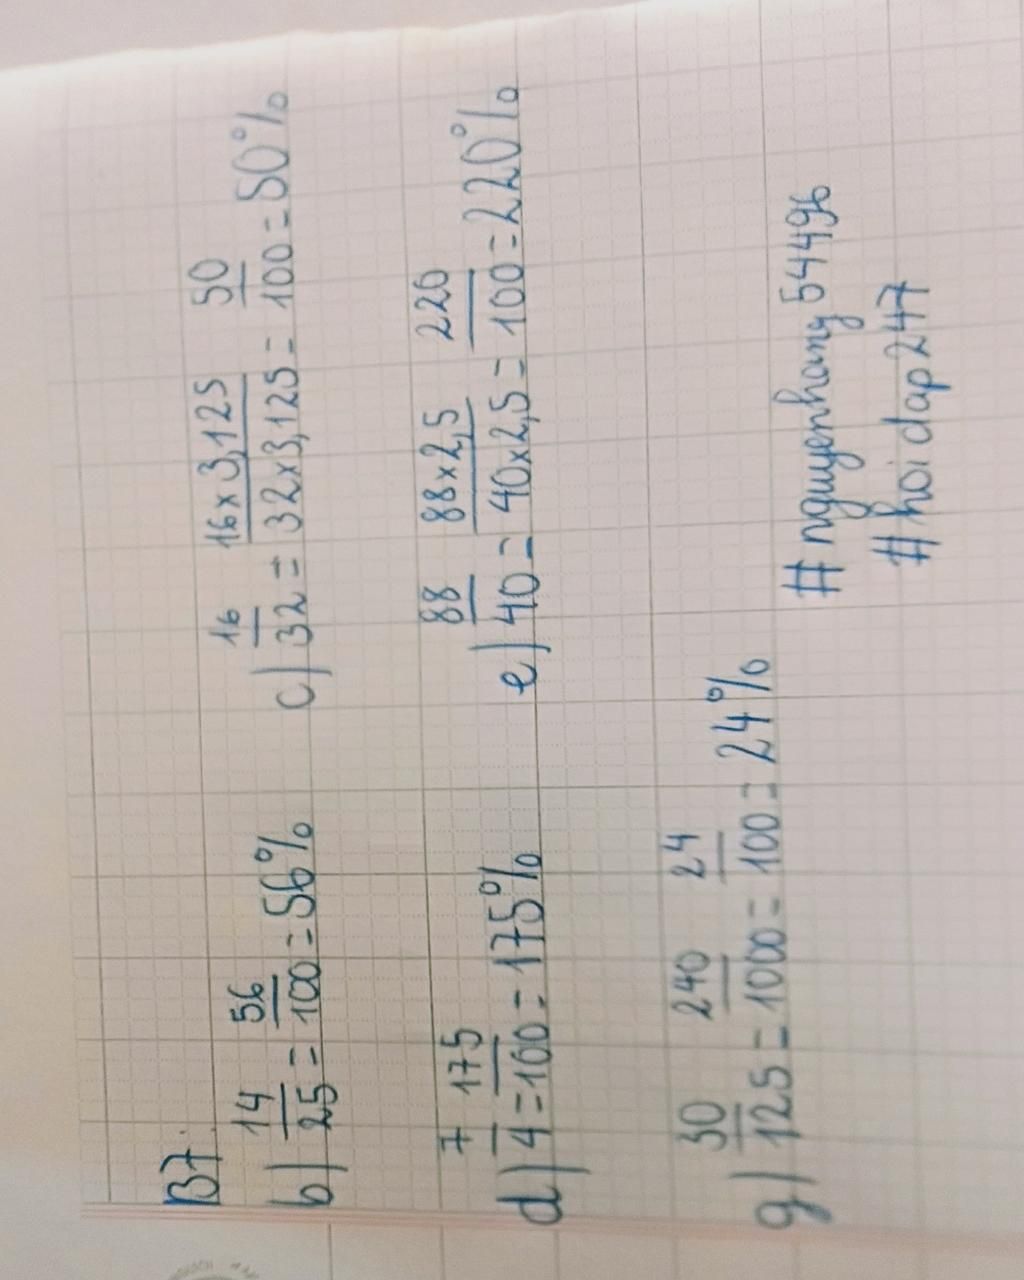 B7.
b) 14/25 = 56/100 = 56%
c) 16/32 = 16 x 3,125/32 x 3,125 = 50/100 = 50%
d) 7/4 = 175/100 = 175%
e) 88/40 = 88 x 2,5/40 x 2,5 = 220/100 = 220%
g) 30/125 = 240/1000 = 24/100 = 24%
# nguyenhang54496
# hoidap247